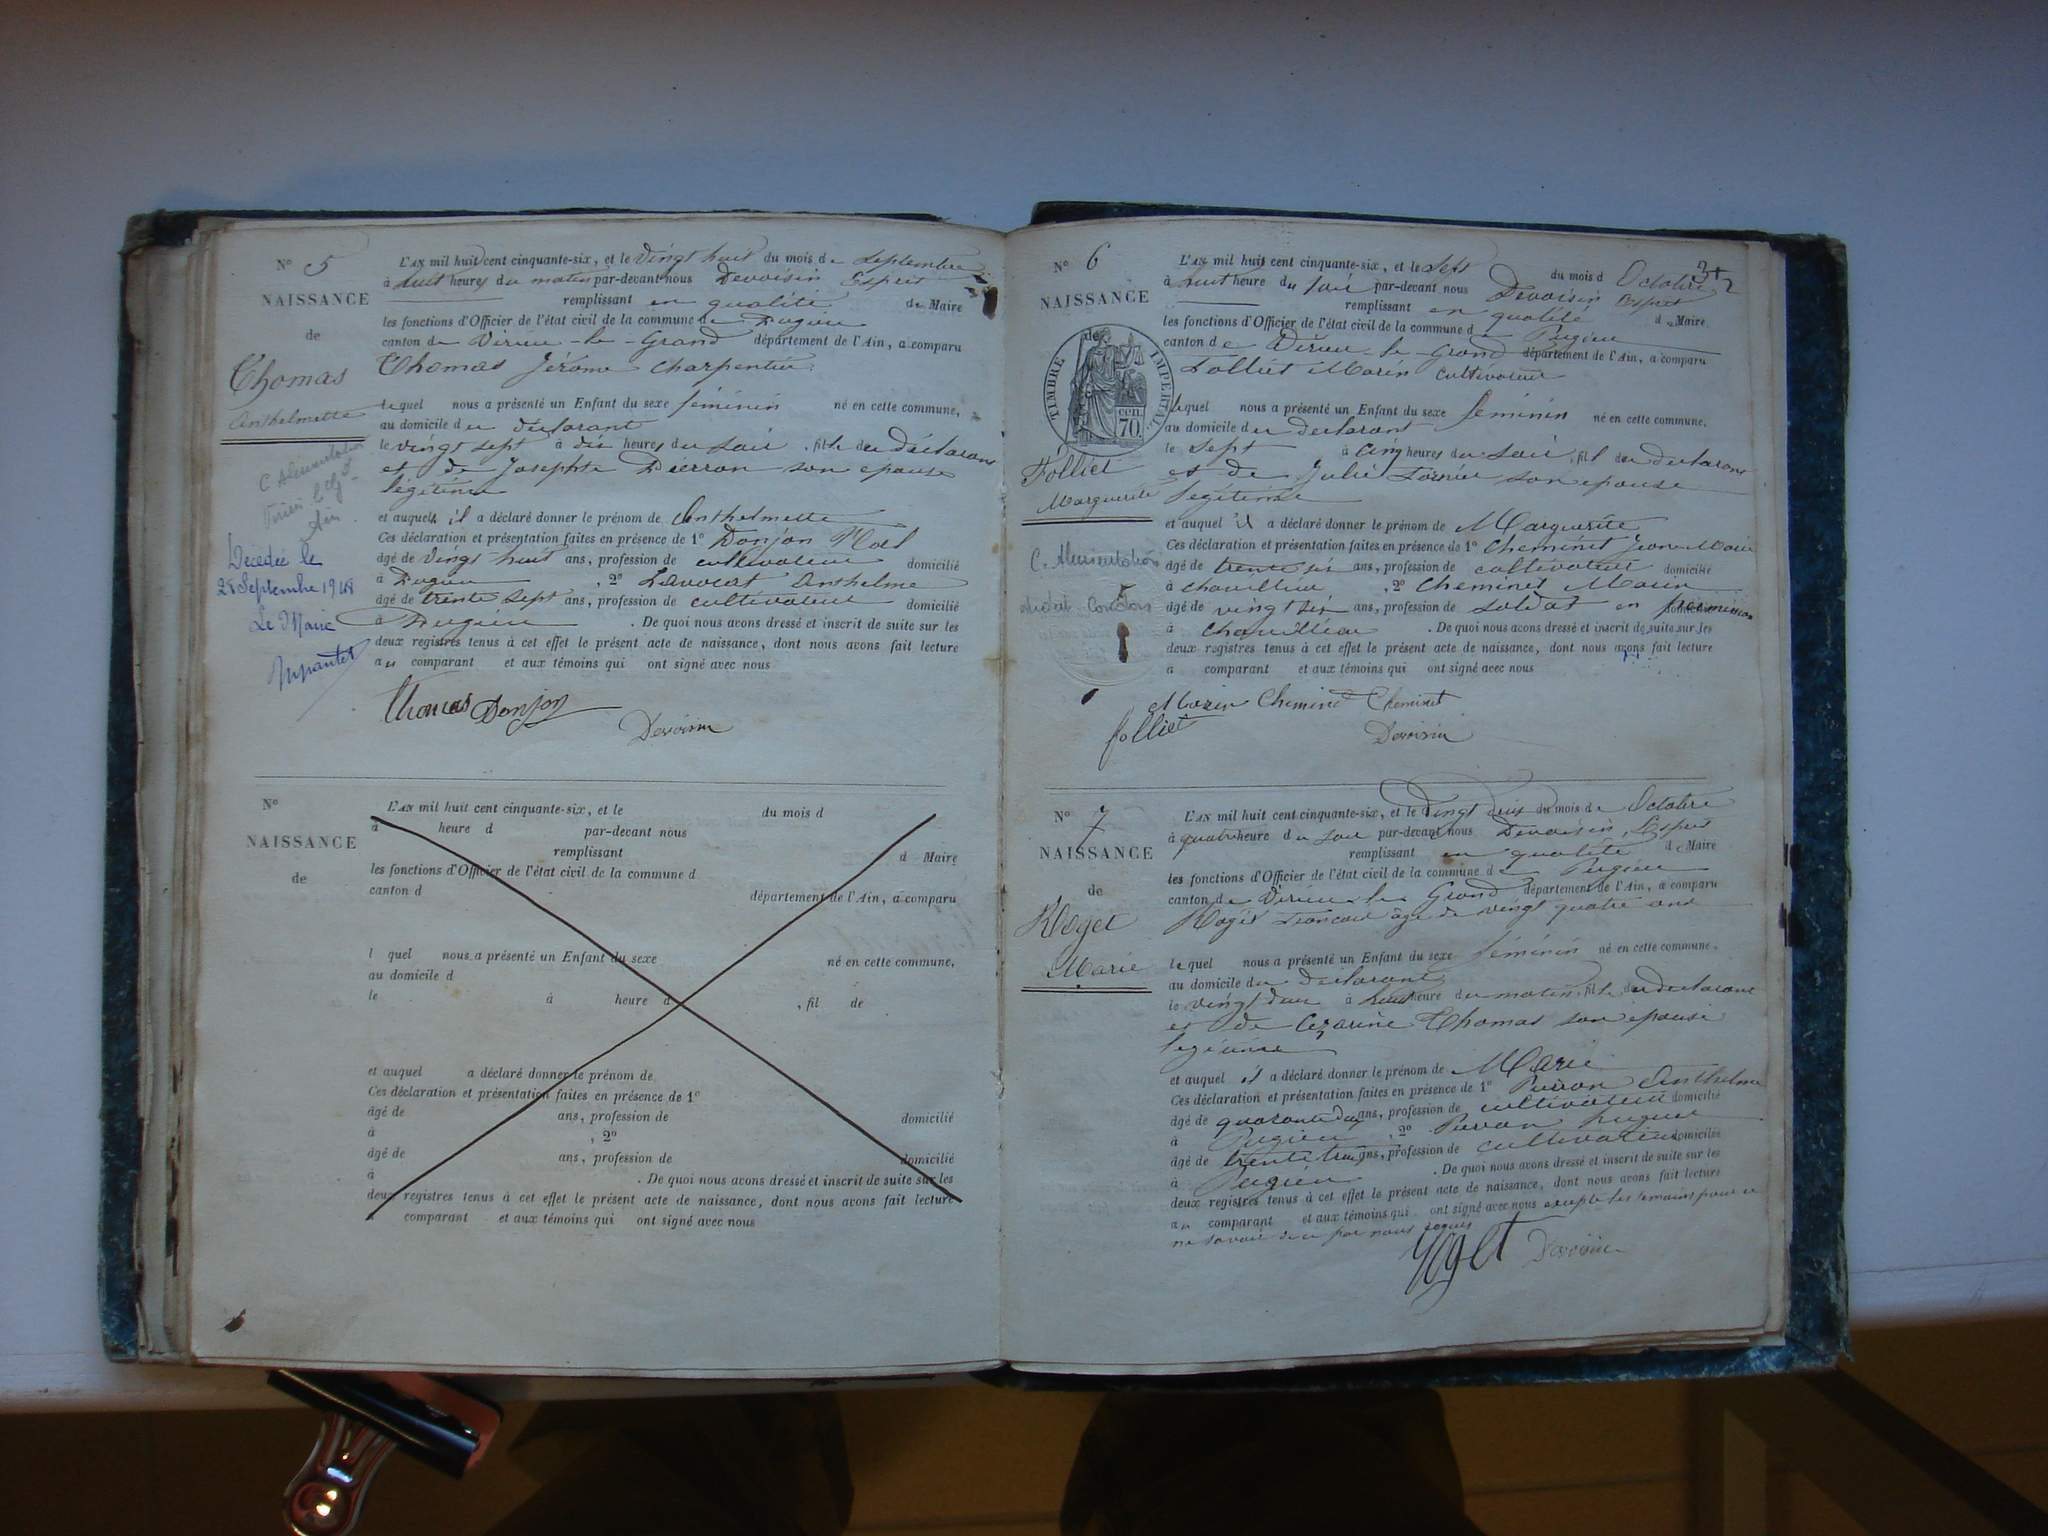 N° 5
NAISSANCE
de
Thomas
Anthelmette
C. Alimentation
Ain
Décédée le
28 Septembre 1948
Le Maire
L'AN mil huit cent cinquante-six, et le vingt huit du mois de Septembre
à huit heures du matin par-devant nous Devoisin Esprit
remplissant en qualité de Maire
les fonctions d'Officier de l'état civil de la commune de Pugieu
canton de Virieu-le-Grand département de l'Ain, a comparu
Thomas Jérome charpentier
lequel nous a présenté un Enfant du sexe féminin né en cette commune,
au domicile du déclarant
le vingt sept à dix heures du soir, fille du déclarant
et de Josephte Pierron son epouse
légitime
et auquel il a déclaré donner le prénom de Anthelmette
Ces déclaration et présentation faites en présence de 1° Donjon Noel
âgé de vingt huit ans, profession de cultivateur domicilié
à Pugieu, 2° Lavocat Anthelme
âgé de trente sept ans, profession de cultivateur domicilié
à Pugieu. De quoi nous avons dressé et inscrit de suite sur les
deux registres tenus à cet effet le présent acte de naissance, dont nous avons fait lecture
au comparant et aux témoins qui ont signé avec nous
Thomas Donjon
Devoisin
N°
NAISSANCE
de
L'AN mil huit cent cinquante-six, et le du mois d
à heure d par-devant nous
remplissant d Maire
les fonctions d'Officier de l'état civil de la commune d
canton d département de l'Ain, a comparu
l quel nous a présenté un Enfant du sexe né en cette commune,
au domicile d
le à heure d , fil de
et auquel a déclaré donner le prénom de
Ces déclaration et présentation faites en présence de 1°
âgé de ans, profession de domicilié
à , 2°
âgé de ans, profession de domicilié
à . De quoi nous avons dressé et inscrit de suite sur les
deux registres tenus à cet effet le présent acte de naissance, dont nous avons fait lecture
a comparant et aux témoins qui ont signé avec nous
N° 6
NAISSANCE
de
TIMBRE IMPERIAL
70 cen.
Folliet
Marguerite
C. Alimentation
L'AN mil huit cent cinquante-six, et le sept du mois d Octobre
à huit heure du soir par-devant nous Devoisin Esprit
remplissant en qualité de Maire
les fonctions d'Officier de l'état civil de la commune de Pugieu
canton de Virieu-le-Grand département de l'Ain, a comparu
Folliet Marin cultivateur
lequel nous a présenté un Enfant du sexe féminin né en cette commune,
au domicile du déclarant
le sept à cinq heures du soir, fille du déclarant
et de Julie son epouse
legitime
et auquel il a déclaré donner le prénom de Marguerite
Ces déclaration et présentation faites en présence de 1° Cheminet Jean Marie
âgé de trente six ans, profession de cultivateur domicilié
à , 2° Cheminet Marin
âgé de vingt six ans, profession de soldat en permission domicilié
à . De quoi nous avons dressé et inscrit de suite sur les
deux registres tenus à cet effet le présent acte de naissance, dont nous avons fait lecture
a comparant et aux témoins qui ont signé avec nous
Marin Cheminet Cheminet
folliet Devoisin
N° 7
NAISSANCE
de
Roget
Marie
L'AN mil huit cent cinquante-six, et le vingt deux du mois de Octobre
à quatre heure du soir par-devant nous Devoisin Esprit
remplissant en qualité de Maire
les fonctions d'Officier de l'état civil de la commune de Pugieu
canton de Virieu-le-Grand département de l'Ain, a comparu
Roget Francois âgé de vingt quatre ans
lequel nous a présenté un Enfant du sexe féminin né en cette commune,
au domicile du déclarant
le vingt deux à heure du matin, fille du déclarant
et de Cezarine Thomas son epouse
legitime
et auquel il a déclaré donner le prénom de Marie
Ces déclaration et présentation faites en présence de 1° Anthelme
âgé de quarante deux ans, profession de cultivateur domicilié
à Pugieu, 2°
âgé de trente trois ans, profession de cultivateur domicilié
à Pugieu. De quoi nous avons dressé et inscrit de suite sur les
deux registres tenus à cet effet le présent acte de naissance, dont nous avons fait lecture
au comparant et aux témoins qui ont signé avec nous excepté les témoins pour
ne savoir de ce par nous requis
Roget Devoisin